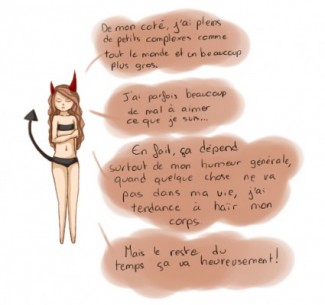 De mon coté, j'ai pleins
de petits complexes comme
tout le monde et un beaucoup
plus gros.
J'ai parfois beaucoup
de mal à aimer
ce que je suis...
En fait, ça dépend
surtout de mon humeur générale,
quand quelque chose ne va
pas dans ma vie, j'ai
tendance à haïr mon
corps.
Mais le reste du
temps ça va heureusement!